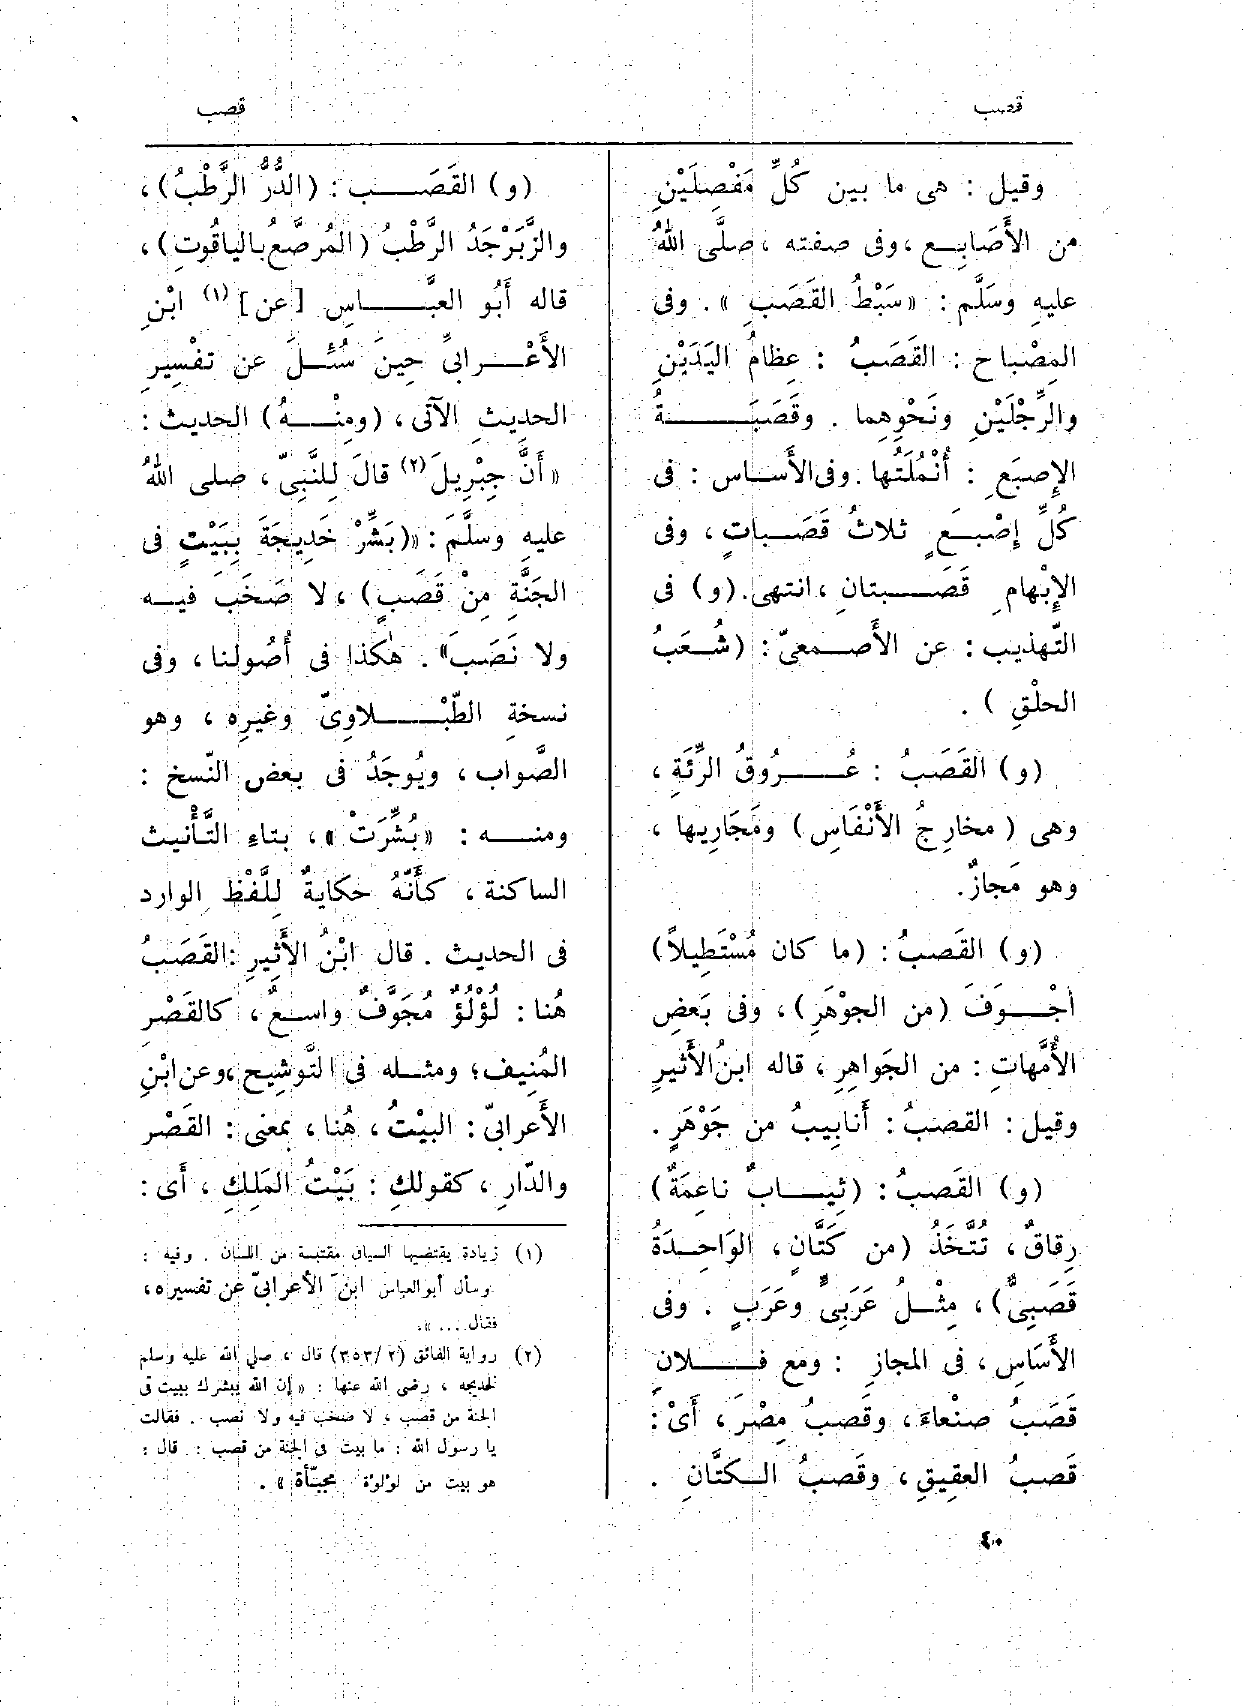 قصب
قصب
وقيل : هى ما بين كُلِّ مَفْصِلَيْنِ
من الأَصَابِع ، وفى صفته ، صلَّى اللهُ
عليهِ وسَلَّم : «سَبْطُ القَصَبِ» . وفى
المِصْباح : القَصَبُ : عِظامُ اليَدَيْنِ
والرِّجْلَيْنِ ونَحْوِهما . وقَصَبَةُ
الإِصبَعِ : أَنْمُلَتُها . وفى الأَساس : فى
كُلِّ إِصْبَعٍ ثلاثُ قَصَباتٍ ، وفى
الإِبْهامِ قَصَبتانِ ، انتهى . (و) فى
التَّهذيب : عن الأَصمعىّ : (شُعَبُ
الحلْقِ ) .
(و) القَصَبُ : عُرُوقُ الرِّئَةِ ،
وهى ( مخارِجُ الأَنْفَاسِ ) ومَجَارِيها ،
وهو مَجازٌ .
(و) القَصبُ : (ما كان مُسْتَطِيلاً)
أَجْوَفَ (من الجوْهَرِ) ، وفى بَعضِ
الأُمَّهاتِ : من الجَواهِرِ ، قاله ابنُ الأَثيرِ
وقيل : القصبُ : أَنابِيبُ من جَوْهَرٍ .
(و) القَصبُ : (ثِيابٌ ناعِمَةٌ)
رِقاقٌ ، تُتَّخَذُ (من كَتَّانٍ ، الوَاحِدَةُ
قَصَبِىٌّ) ، مِثْلُ عَرَبِىٍّ وعَرَبٍ . وفى
الأَسَاسِ ، فى المجاز : ومع فلانٍ
قَصَبُ صنْعاءَ ، وقَصبُ مِصْرَ ، أَىْ :
قَصبُ العقِيقِ ، وقَصبُ الكتَّانِ .
(و) القَصَب : (الدُّرُّ الرَّطْبُ) ،
والزَّبَرْجَدُ الرَّطْبُ (المُرصَّعُ بالياقُوتِ) ،
قاله أَبُو العبَّاسِ [عن] (١) ابْنِ
الأَعْرابىِّ حِينَ سُئِلَ عن تفْسِيرِ
الحديثِ الآتى ، (ومِنْهُ) الحديث :
«أَنَّ جِبْرِيلَ (٢) قالَ لِلنَّبِىّ ، صلى اللهُ
عليهِ وسلَّمَ : «(بَشِّرْ خَدِيجَةَ بِبَيْتٍ فى
الجَنَّةِ مِنْ قَصَبٍ) ، لا صَخَبَ فيه
ولا نَصَبَ» . هٰكذا فى أُصُولنا ، وفى
نسخةِ الطَّبْلاوِىّ وغيرِه ، وهو
الصَّواب ، ويُوجَدُ فى بعض النّسخ :
ومنه : «بُشِّرَتْ» ، بتاءِ التَّأْنيث
الساكنة ، كأَنَّهُ حكايةٌ لِلَّفْظِ الوارد
فى الحديث . قال ابْنُ الأَثِيرِ : القَصَبُ
هُنا : لُؤْلُؤٌ مُجَوَّفٌ واسعٌ ، كالقَصْرِ
المُنِيف ؛ ومثله فى التَّوشِيحِ ، وعن ابْنِ
الأَعرابىّ : البيْتُ ، هُنا ، بمعنى : القَصْر
والدّارِ ، كقولكِ : بَيْتُ المَلِكِ ، أَى :
(١) زيادة يقتضيها السياق مقتبسة من اللسان . وفيه :
وسأل أبوالعباس ابنَ الأعرابىّ عن تفسيره ،
فقال ... » .
(٢) رواية الفائق (٢/ ٣٥٣) قال ، صلى الله عليه وسلم
لخديجه ، رضى الله عنها : «إن الله يبشرك ببيت فى
الجنة من قصب ، لا صخب فيه ولا نصب . فقالت
يا رسول الله : ما بيت فى الجنة من قصب : قال :
هو بيت من لؤلؤة مجبَّأة » .
٤٠